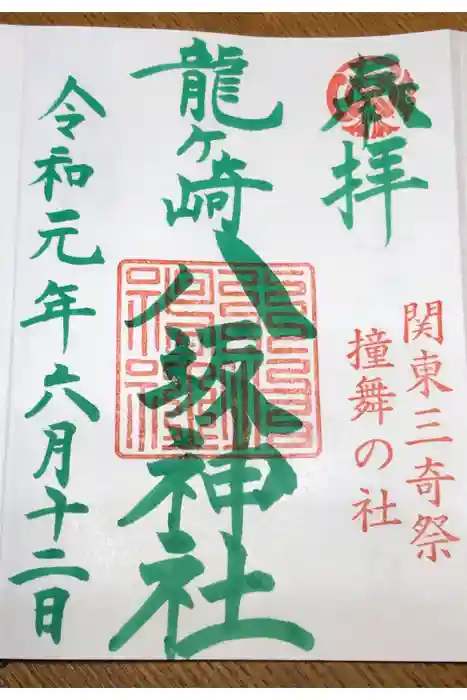 奉拝
関東三奇祭
撞舞の社
龍ヶ崎八坂神社
令和元年六月十二日